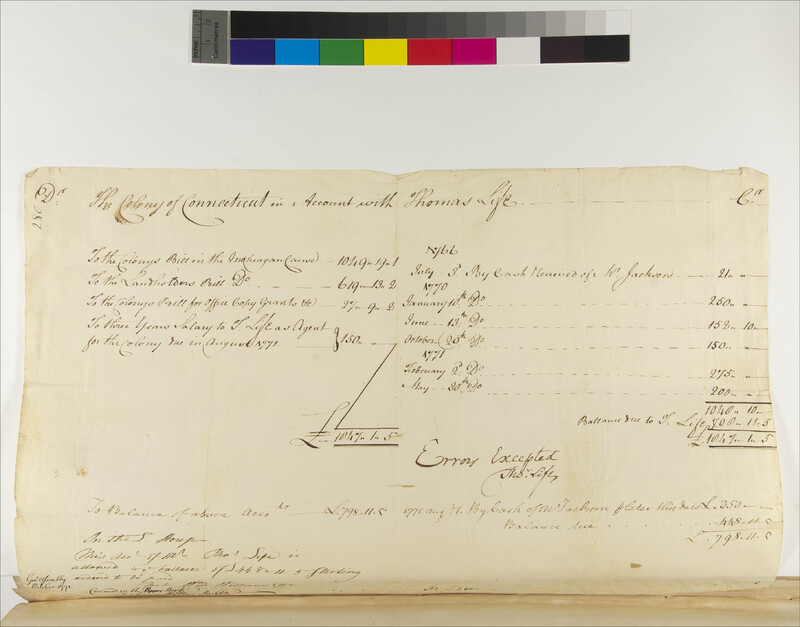 Centimetres
280
Dr
The Colony of Connecticut in Account with Thomas Life
Cr
To the Colonys Bill in the Mohegan Cause 1049 - 19 - 1
To the Landholders Bill Do 619 - 13 - 2
To the Colonys Bill for Office Copy Grants &c 27 - 9 - 2
To three Years Salary to T. Life as Agent
for the Colony due in August 1771. 150 ..
£ 1847 - 1 - 5
1766
July By Cash Received of Mr Jackson 21 ..
1770
January 10th Do 250 ..
June 13th Do 152 .. 10 ..
October 26th Do 150 ..
1771
February 2d Do 275 ..
May 20th Do 200 ..
1048 .. 10 ..
Ballance due to T. Life 798 .. 11 .. 5
£ 1847 .. 1 .. 5
Errors Excepted
Thos Life
To Balance of above Acco £798 .. 11 .. 5
1771 Aug By Cash of Mr Jackson this date £ 350
Balance due 448 .. 11 .. 5
£ 798 .. 11 .. 5
In the House
This Acct of Mr Thos Life is
allowed & ye ballance of £448 .. 11 .. 5 Sterling
ordered to be paid
Genl Assembly
October 1771